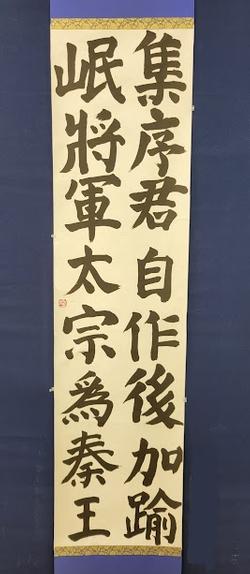 集序君自作後加踰
岷將軍太宗為秦王